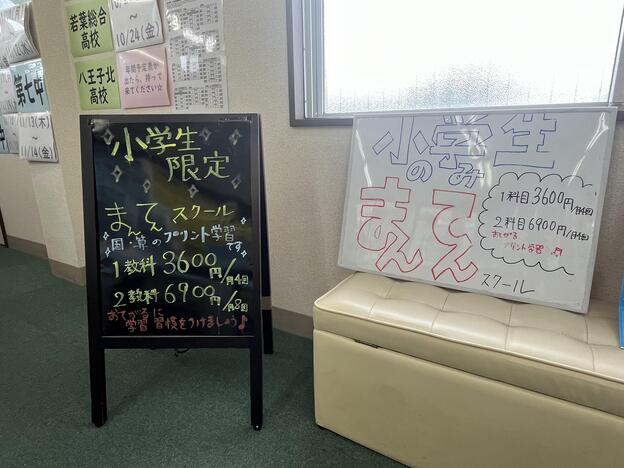 10/24(金)
若葉総合
高校
八王子北
高校
年間予定表が
出たら、持って
来てください☆
第七中
11/13(木)
～
11/14(金)
小学生
限定
まんてんスクール
国・算のプリント学習
です
1教科 3600円/月4回
2教科 6900円/月8回
おてがるに
学習習慣をつけましょう♪
小学生
のみ
まんてん
スクール
1科目3600円/月4回
2科目6900円/月8回
おてがる
プリント学習♬